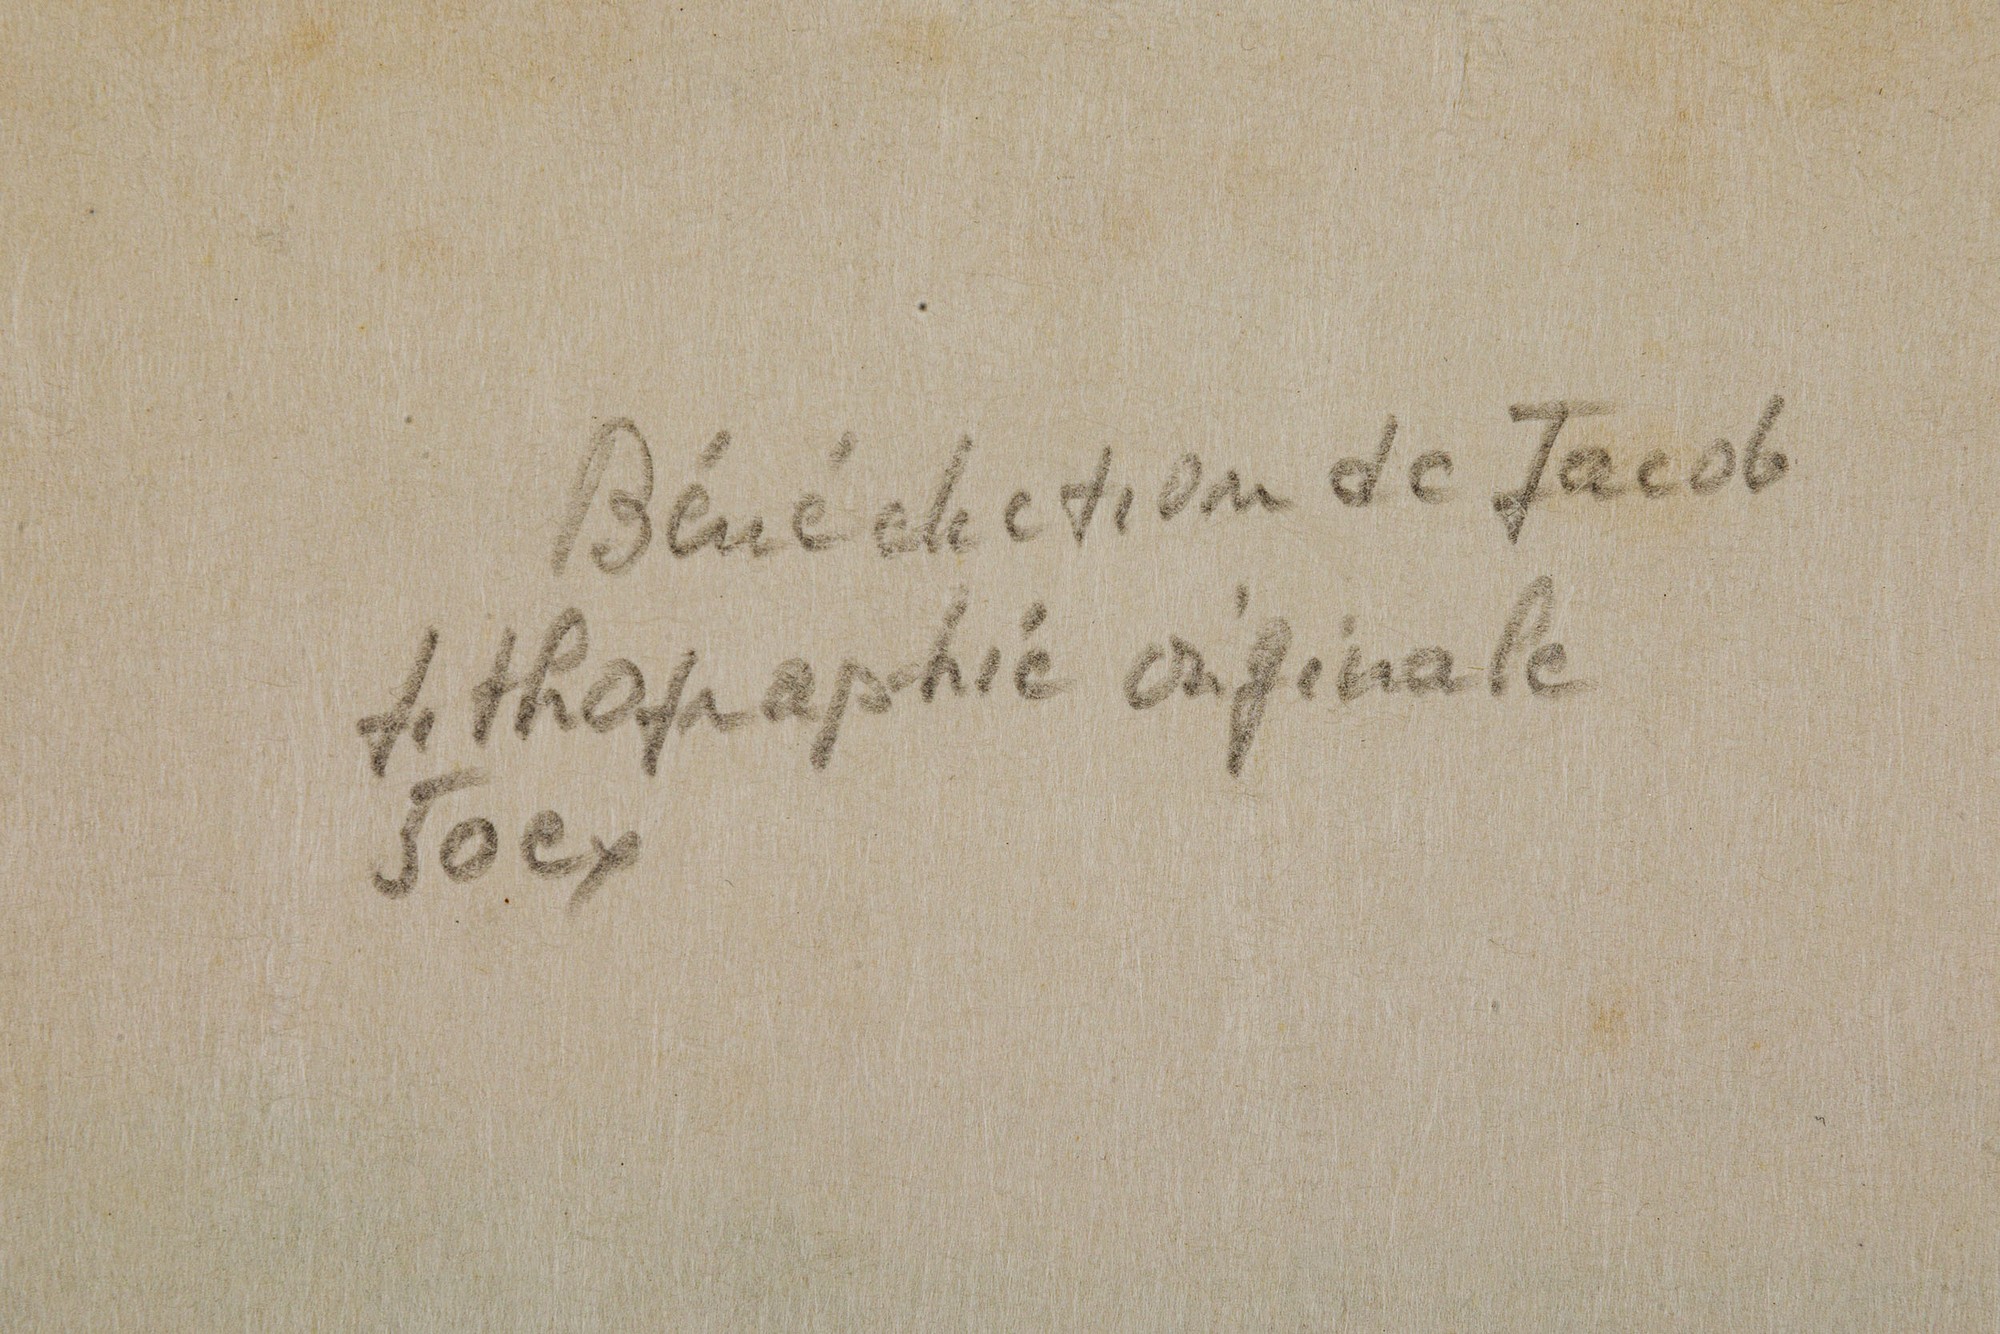 Bénédiction de Jacob
Lithographie originale
50 ex